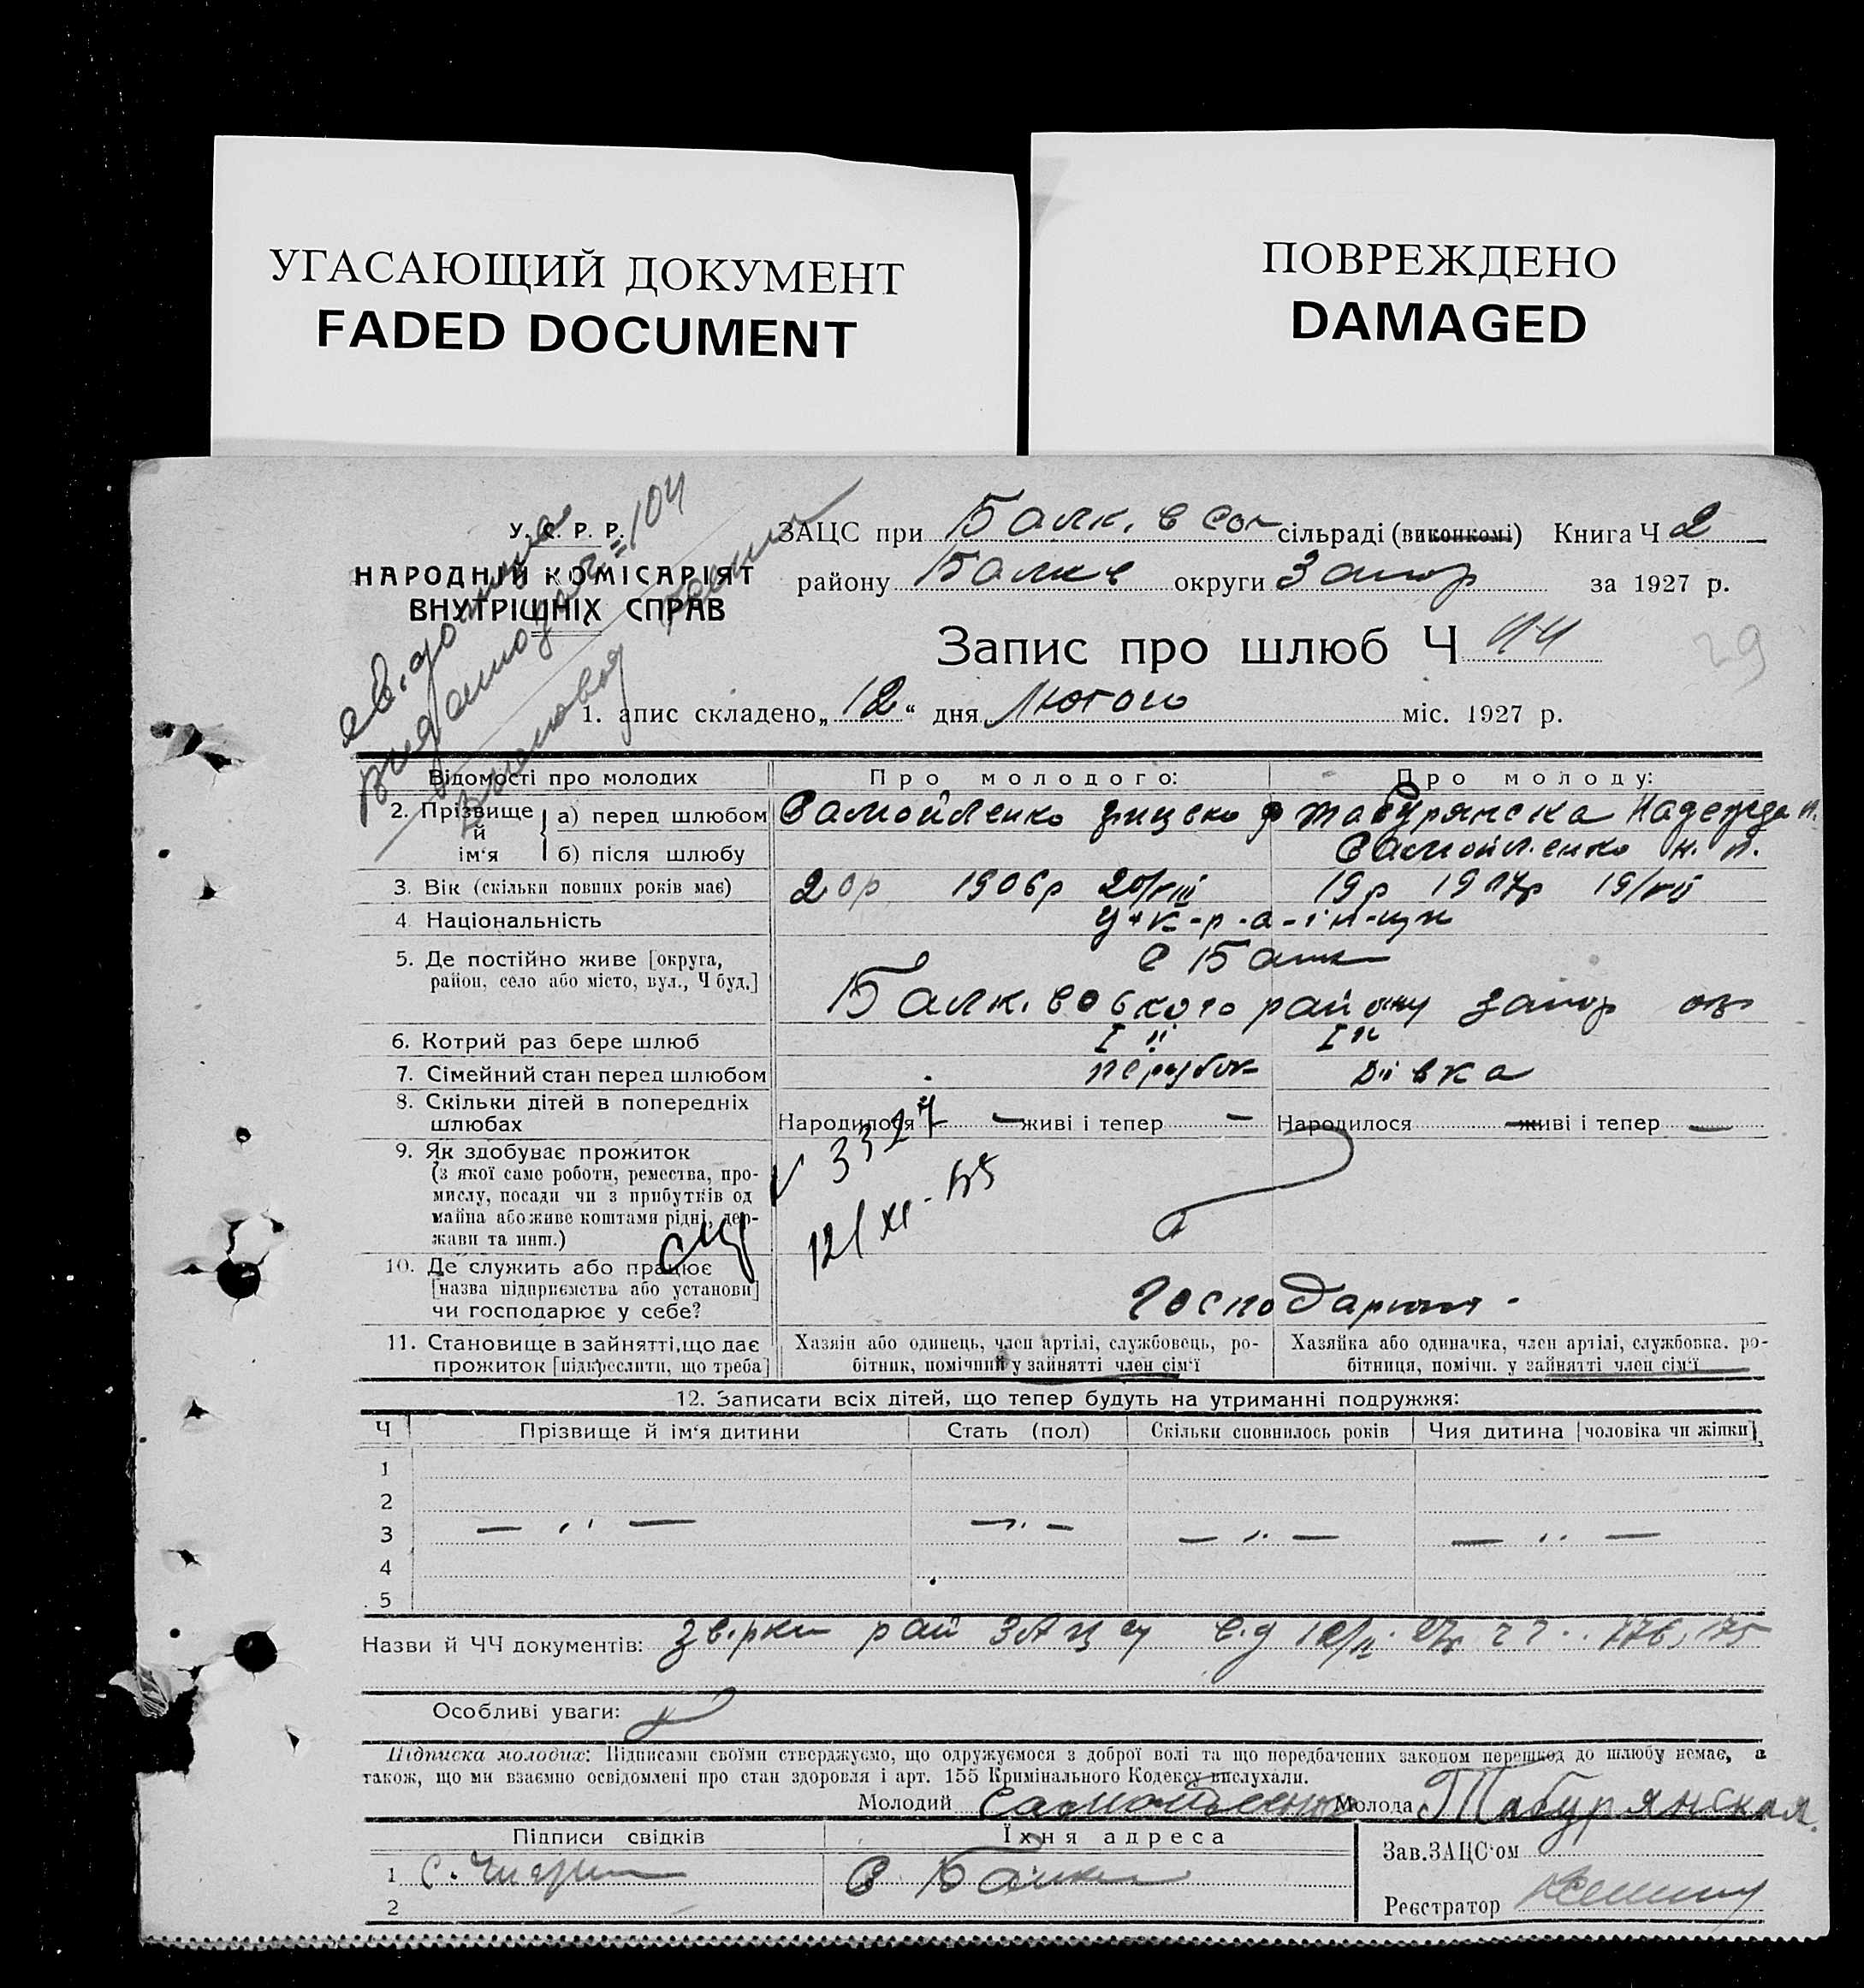 УГАСАЮЩИЙ ДОКУМЕНТ
FADED DOCUMENT
ПОВРЕЖДЕНО
DAMAGED
У. С. Р. Р.
НАРОДНІЙ КОМІСАРІЯТ
ВНУТРІШНІХ СПРАВ
104
ЗАЦС при Балк. сільраді (виконкомі) Книга Ч 2
району округи Запор за 1927 р.
Запис про шлюб Ч 44
29
1. апис складено „12“ дня Лютого міс. 1927 р.
Відомості про молодих
Про молодого:
Про молоду:
2. Прізвище й ім‘я
а) перед шлюбом
Самойленко Грицько Ф
Табурянська Надежда П.
б) після шлюбу
Самойленко Н. П.
3. Вік (скільки повних років має)
20р 1906р 20/VIII
19р 1907р 19/VII
4. Національність
У-к-р-а-ї-н-ц
5. Де постійно живе [округа,
район, село або місто, вул., Ч буд.]
С Балк
Балківського району Запор ок
6. Котрий раз бере шлюб
I й
I й
7. Сімейний стан перед шлюбом
парубок
Дівка
8. Скільки дітей в попередніх
шлюбах
Народилося — живі і тепер —
Народилося — живі і тепер —
3327
12/XI-45
9. Як здобуває прожиток
(з якої саме роботи, ремества, про-
мислу, посади чи з прибутків од
майна або живе коштами рідні, дер-
жави та инш.)
10. Де служить або працює
[назва підприємства або установи]
чи господарює у себе?
11. Становище в зайнятті, що дає
прожиток [підкреслити, що треба]
Хазяїн або одинець, член артілі, службовець, ро-
бітник, помічний у зайнятті член сім‘ї
Хазяйка або одиначка, член артілі, службовка. ро-
бітниця, помічн. у зайнятті член сім‘ї
12. Записати всіх дітей, що тепер будуть на утриманні подружжя:
Ч Прізвище й ім‘я дитини Стать (пол) Скільки сповнилось років Чия дитина [чоловіка чи жінки]
1
2
3 — „ — — „ — — „ — — „ —
4
5
Назви й ЧЧ документів: рай ЗАЦСу
Особливі уваги:
Підписка молодих: Підписами своїми стверджуємо, що одружуємося з доброї волі та що передбачених законом перешкод до шлюбу немає, а
також, що ми взаємно освідомлені про стан здоровля і арт. 155 Кримінального Кодексу вислухали.
Молодий Самойленко Молода Табурянская
Підписи свідків
Їхня адреса
Зав. ЗАЦС‘ом
1 С. С Балки
Реєстратор
2